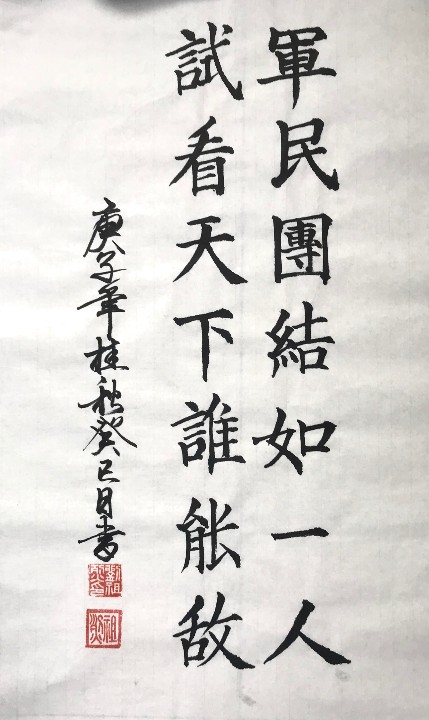 軍民團結如一人
試看天下誰能敌
庚子年桂秋癸巳日書